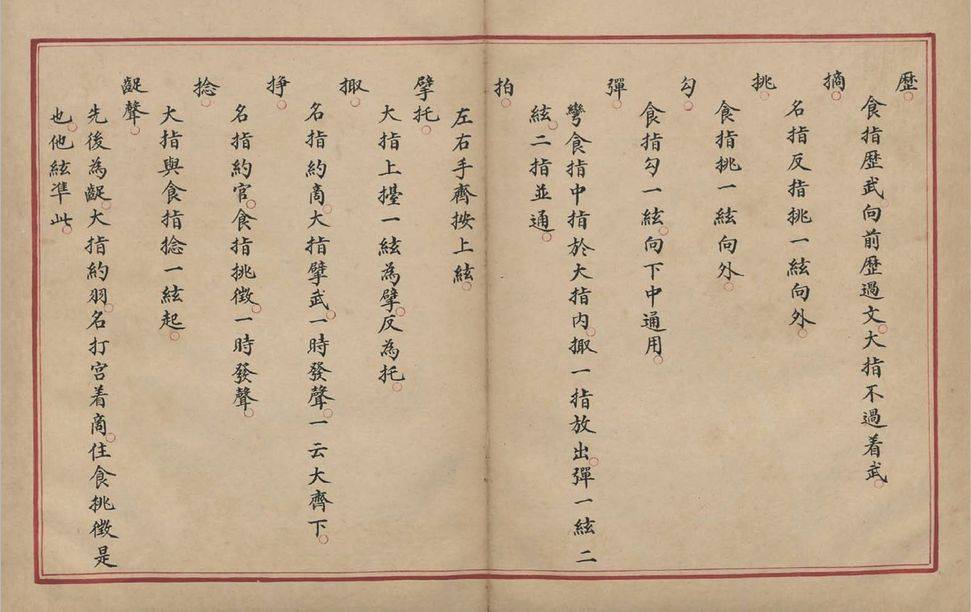 歷。
食指歷武向前歷過文。大指不過着武。
摘。
名指反指挑一絃向外。
挑。
食指挑一絃向外。
勾。
食指勾一絃。向下中通用。
彈。
彎食指中指於大指内。掫一指放出。彈一絃二
絃。二指並通。
拍。
左右手齊按上絃。
擘托。
大指上擡一絃為擘。反為托。
掫。
名指約商。大指擘武。一時發聲。一云大齊下。
掙。
名指約宫。食指挑徵。一時發聲。
捻。
大指與食指捻一絃起。
齪聲。
先後為齪。大指約羽。名打宫着商。住食挑徵是
也。他絃凖此。